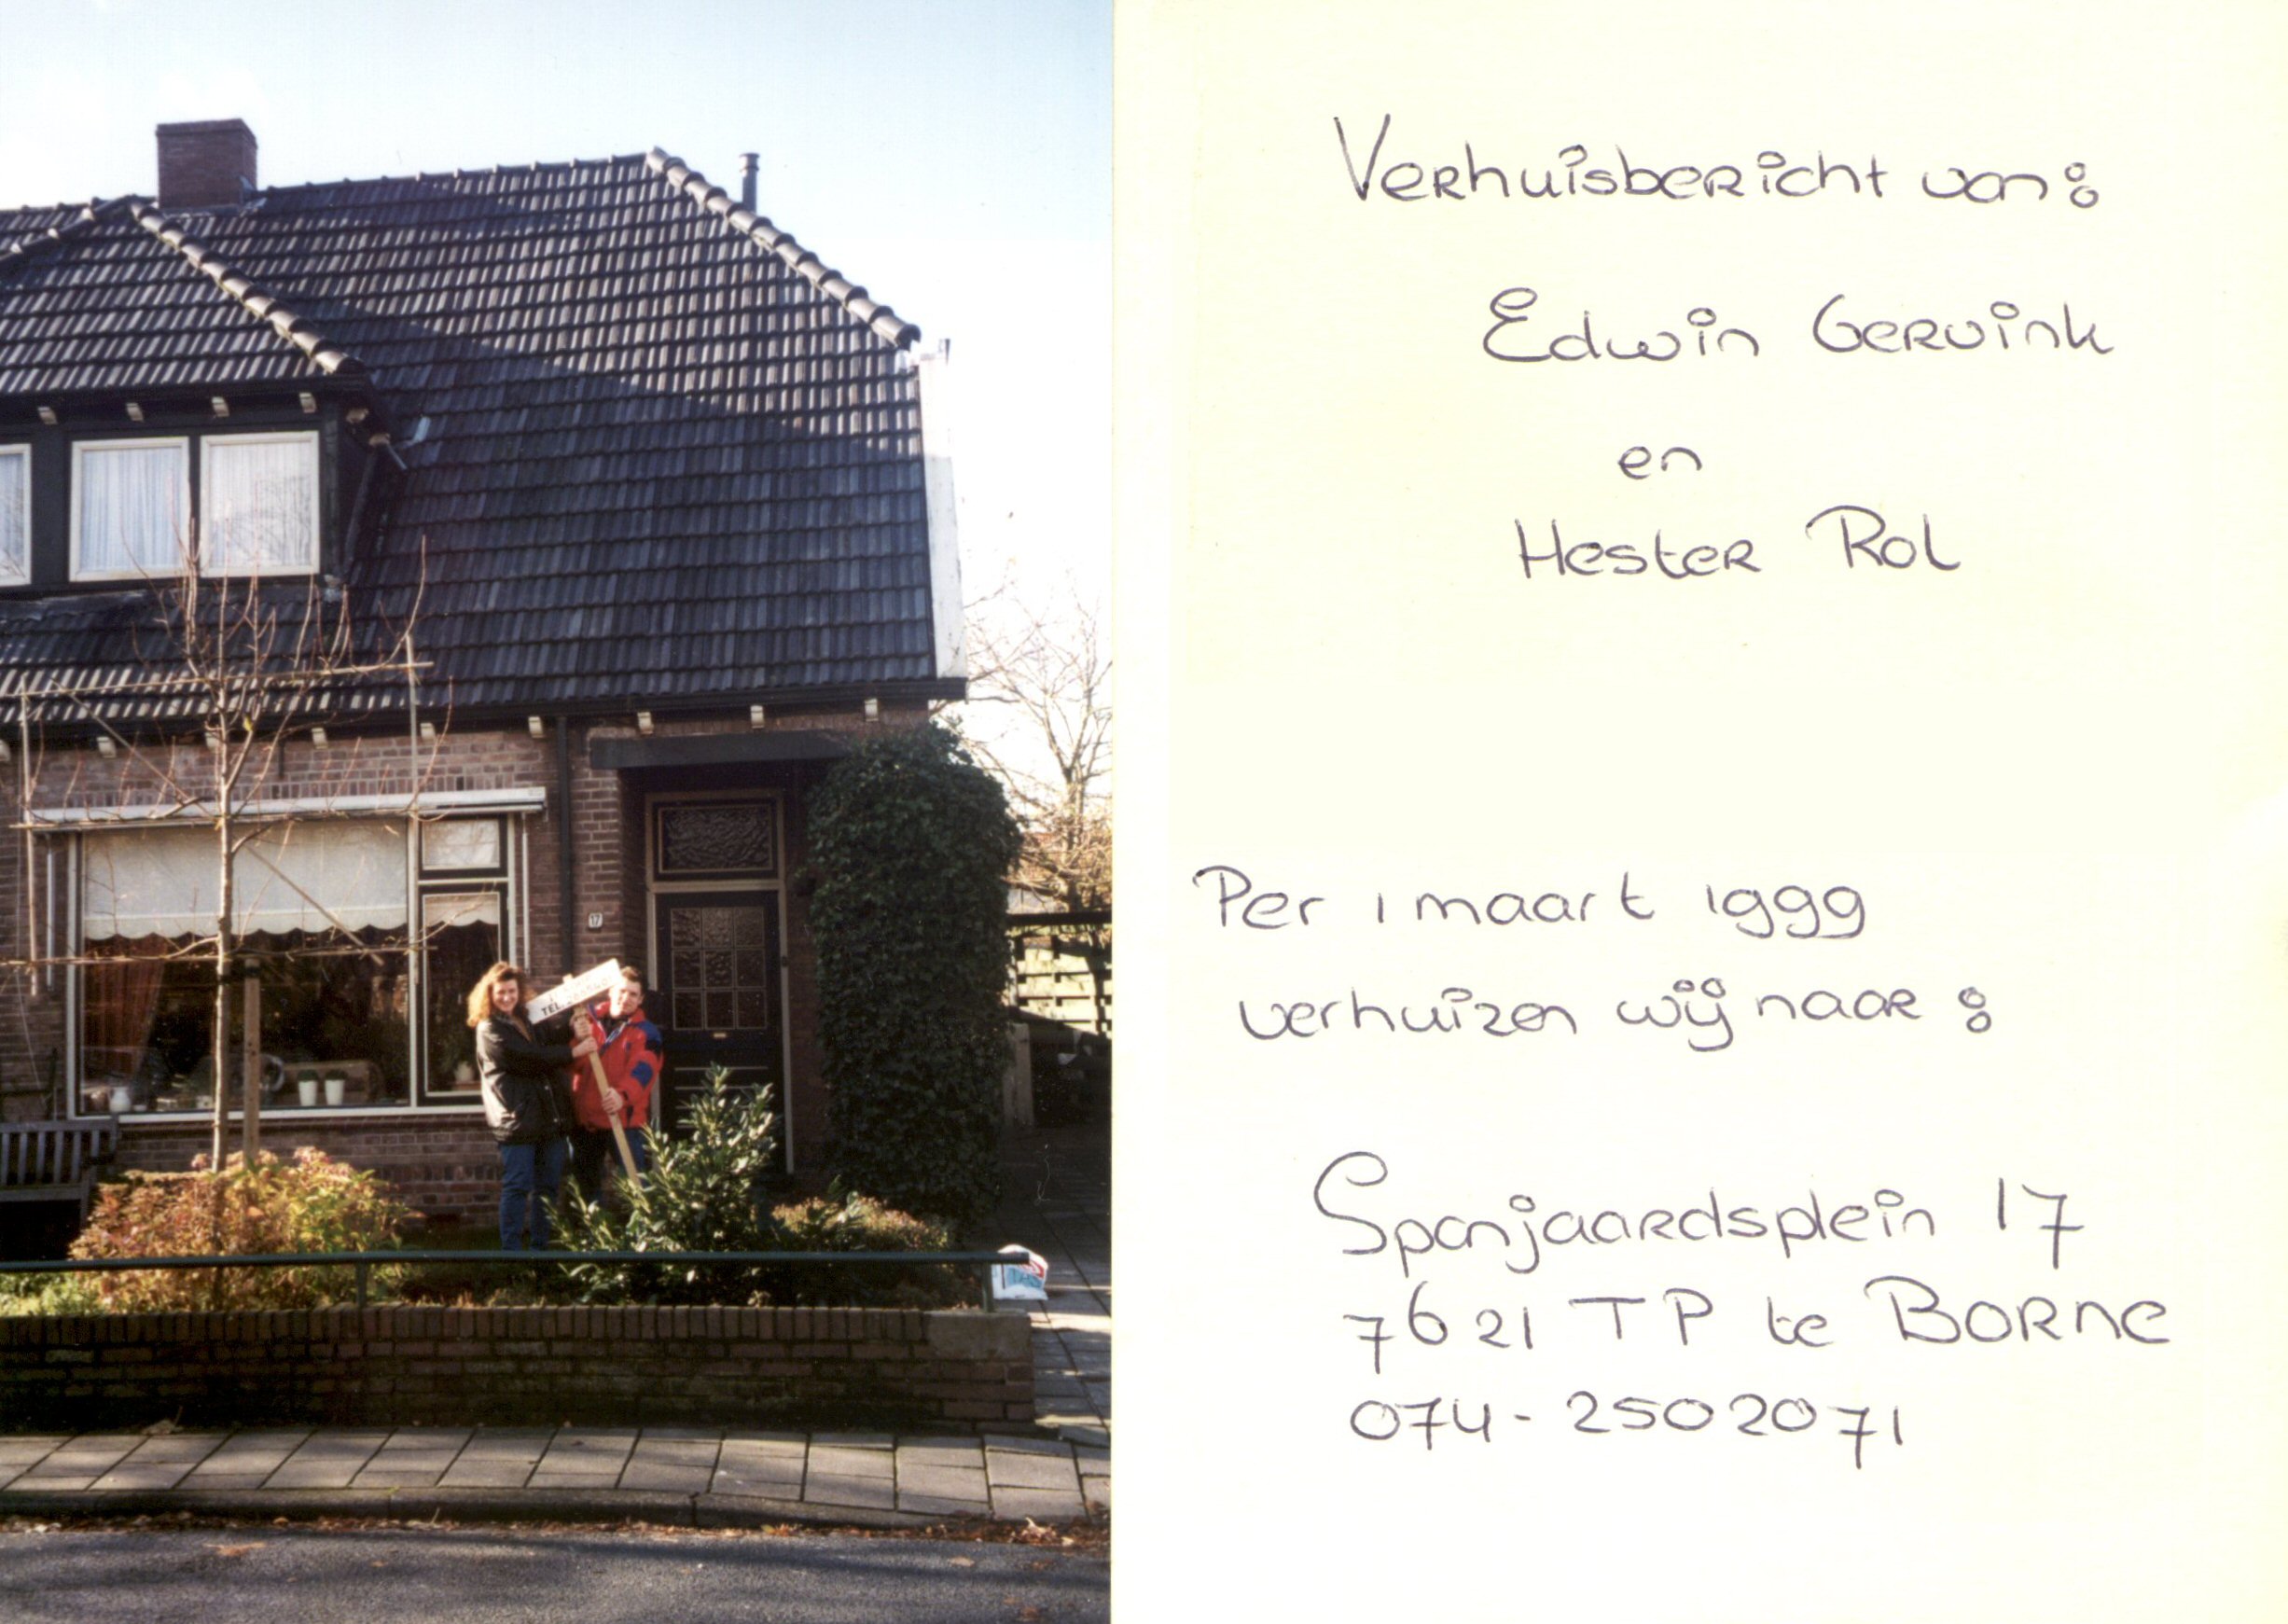 Verhuisbericht van:
Edwin Gervink
en
Hester Rol
Per 1 maart 1999
verhuizen wij naar:
Spanjaardsplein 17
7621 TP te Borne
074-2502071
17
TEL